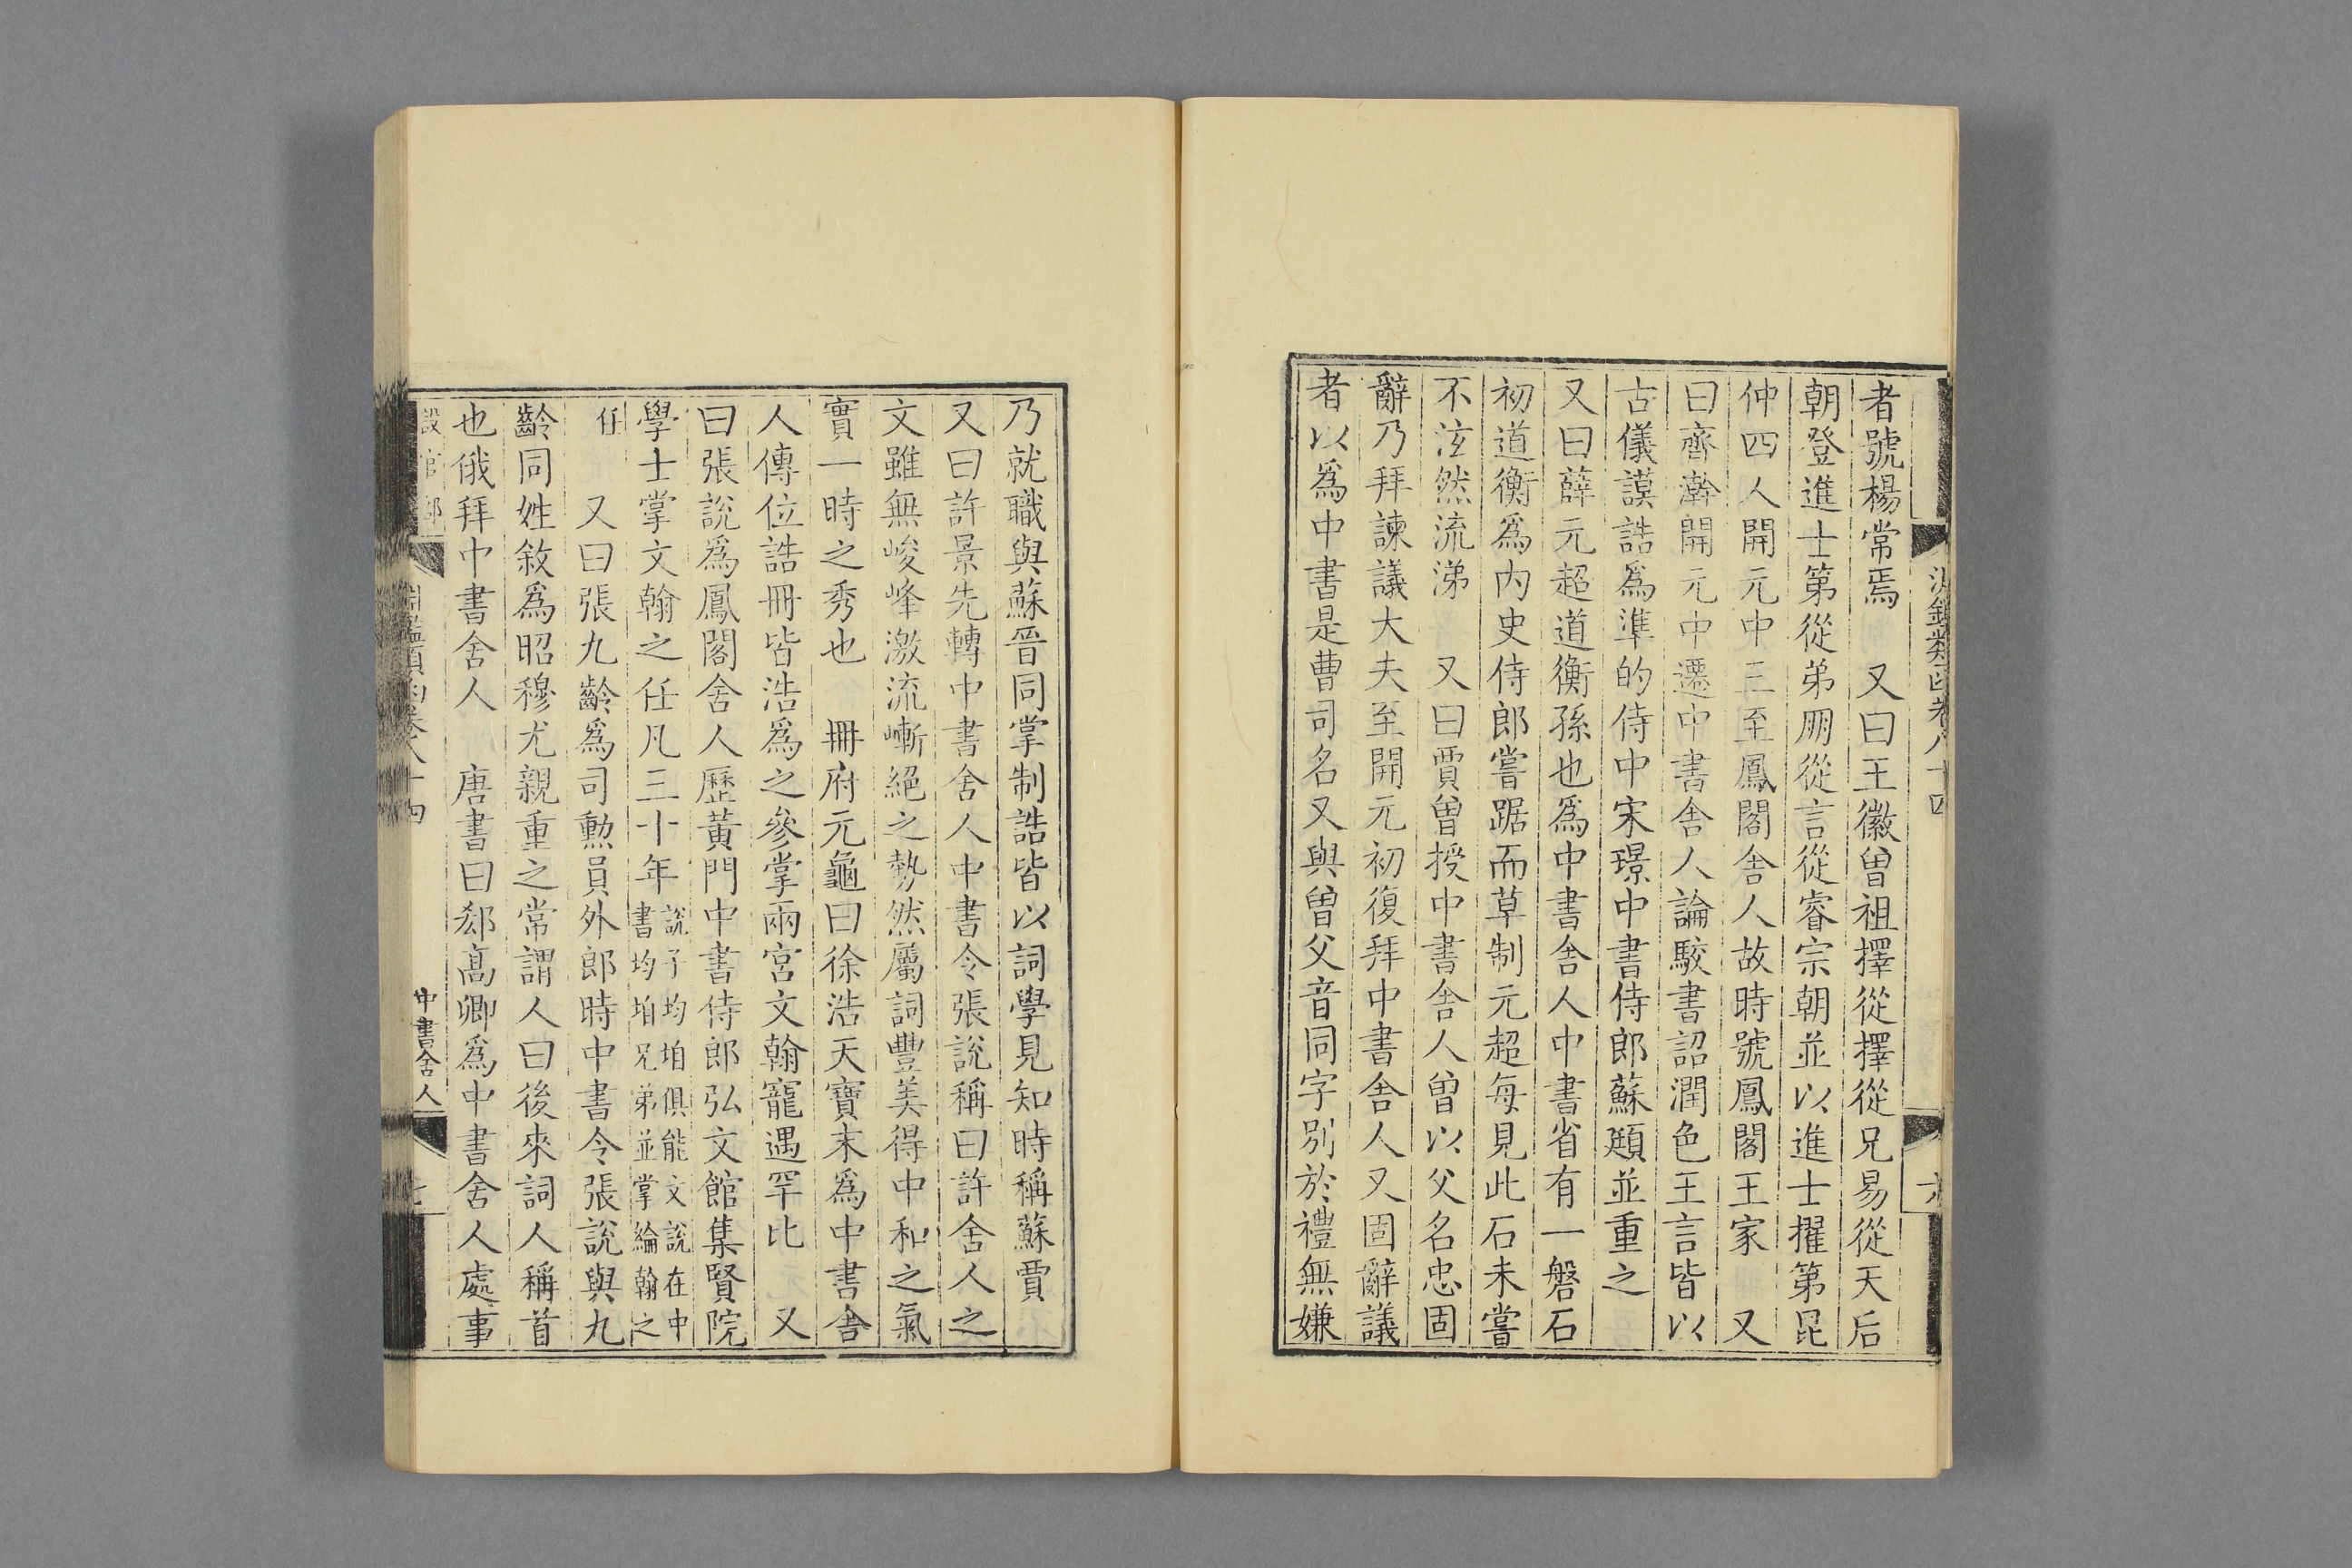 淵鑑類函卷八十四
六
者號楊常焉　又曰王徽曾祖擇從擇從兄易從天后
朝登進士第從弟朋從言從睿宗朝並以進士擢第昆
仲四人開元中三至鳳閣舍人故時號鳳閣王家　又
曰齊澣開元中遷中書舍人論駮書詔潤色王言皆以
古儀謨誥爲準的侍中宋璟中書侍郎蘇頲並重之
又曰薛元超道衡孫也爲中書舍人中書省有一磐石
初道衡爲內史侍郎嘗踞而草制元超每見此石未嘗
不泫然流涕　又曰賈曾授中書舍人曾以父名忠固
辭乃拜諫議大夫至開元初復拜中書舍人又固辭議
者以爲中書是曹司名又與曾父音同字別於禮無嫌
乃就職與蘇晉同掌制誥皆以詞學見知時稱蘇賈
又曰許景先轉中書舍人中書令張說稱曰許舍人之
文雖無峻峰激流嶃絕之勢然屬詞豐美得中和之氣
實一時之秀也　冊府元龜曰徐浩天寶末爲中書舍
人傳位誥冊皆浩爲之參掌兩宮文翰寵遇罕比　又
曰張說爲鳳閣舍人歷黃門中書侍郎弘文館集賢院
學士掌文翰之任凡三十年說子均垍俱能文說在中
書均垍兄弟並掌綸翰之
任　又曰張九齡爲司勳員外郎時中書令張說與九
齡同姓敘爲昭穆尤親重之常謂人曰後來詞人稱首
也俄拜中書舍人　唐書曰郄高卿爲中書舍人處事
設官部
淵鑑類函卷八十四
中書舍人
七